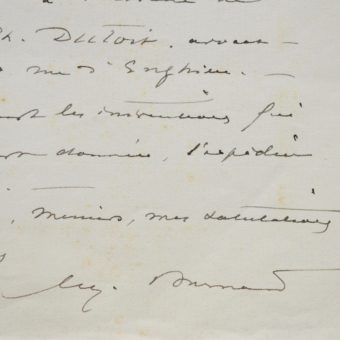 Ch. Dutoit, avocat –
rue d'Enghien. –
les instructions qui
donnés, l'expédier
, Messieurs, mes salutations
Eug. Burnand